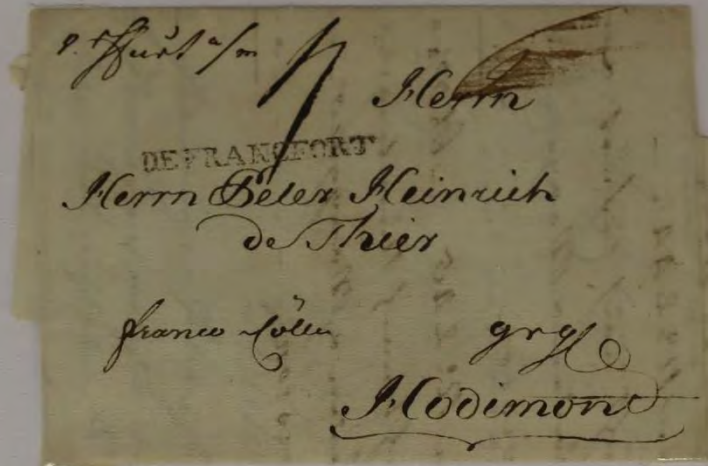 Herrn
DE FRANCFORT
Herrn Peter Heinrich
de Thier
franco Cölln
Hodimont